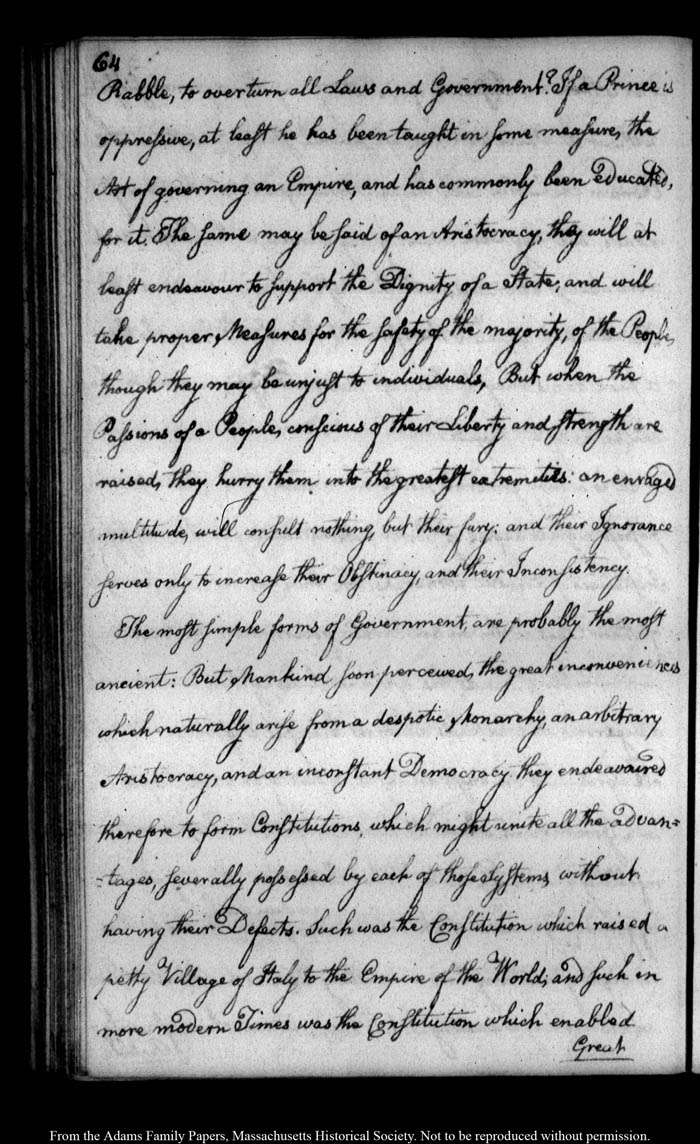 64
Rabble, to overturn all Laws and Government? If a Prince is
oppressive, at least he has been taught in some measure, the
Art of governing an Empire, and has commonly been educated,
for it. The same may be said of an Aristocracy, they will at
least endeavour to support the Dignity of a State, and will
take proper Measures for the safety of the majority, of the People,
though they may be unjust to individuals, But when the
Passions of a People, conscious of their Liberty and strength are
raised, they hurry them into the greatest extremities: an enraged
multitude, will consult nothing, but their fury; and their Ignorance
serves only to increase their Obstinacy, and their Inconsistency.
The most simple forms of Government, are probably the most
ancient: But Mankind soon perceived, the great inconveniences
which naturally arise from a despotic Monarchy, an arbitrary
Aristocracy, and an inconstant Democracy. they endeavoured
therefore to form Constitutions, which might unite all the advan=
=tages, severally possessed by each of those Systems, without
having their Defects. Such was the Constitution which raised a
petty Village of Italy to the Empire of the World; and such in
more modern Times was the Constitution which enabled
Great
From the Adams Family Papers, Massachusetts Historical Society. Not to be reproduced without permission.